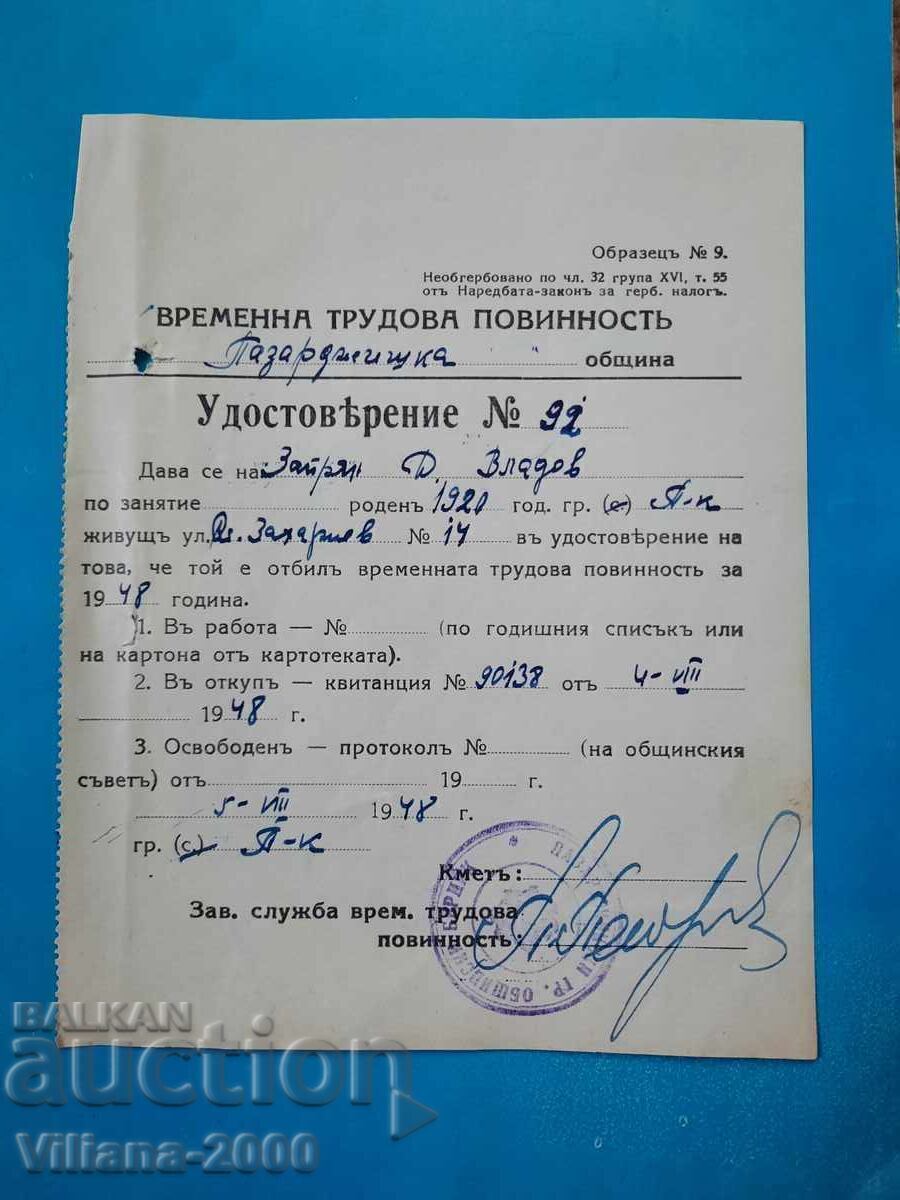 Образецъ № 9.
Необгербовано по чл. 32 група XVI, т. 55
отъ Наредбата-законъ за герб. налогъ.
ВРЕМЕННА ТРУДОВА ПОВИННОСТЬ
Пазарджишка " община
Удостовѣрение № 92
Дава се на Запрян Д. Владов
по занятие роденъ 1920 год. гр. (с) П-к
живущъ ул. Захариев № 14 въ удостовѣрение на
това, че той е отбилъ временната трудова повинность за
1948 година.
1. Въ работа — № (по годишния списъкъ или
на картона отъ картотеката).
2. Въ откупъ — квитанция № 90138 отъ 4-VIII
1948 г.
3. Освободенъ — протоколъ № (на общинския
съветъ) отъ 19 г.
5-VIII 1948 г.
гр. (с.) П-к
Кметъ:
Зав. служба врем. трудова
повинность:
ГР. ОБЩИНСКИ
BALKAN
auction
Viliana-2000